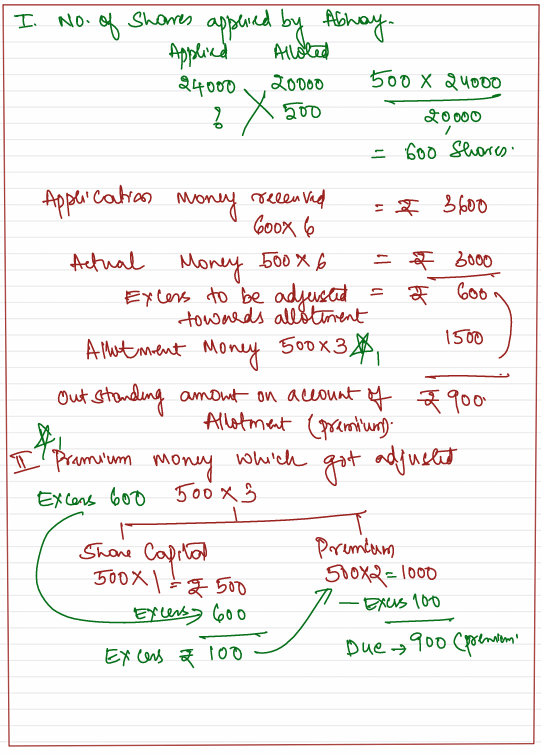 I. No. of Shares applied by Abhay.
Applied Alloted
24000 20000 500 X 24000
? 500 20000
= 600 Shares.
Application Money received = ₹ 3600
600X 6
Actual Money 500 X 6 = ₹ 3000
Excess to be adjusted = ₹ 600
towards allotment
Allotment Money 500 X 3 1 1500
Outstanding amount on account of ₹ 900.
Allotment (premium).
1
II Premium money which got adjusted
Excess 600 500 X 3
Share Capital Premium
500 X 1 = ₹ 500 500X2 = 1000
Excess 600 — Excess 100
Excess ₹ 100 Due → 900 (premium)